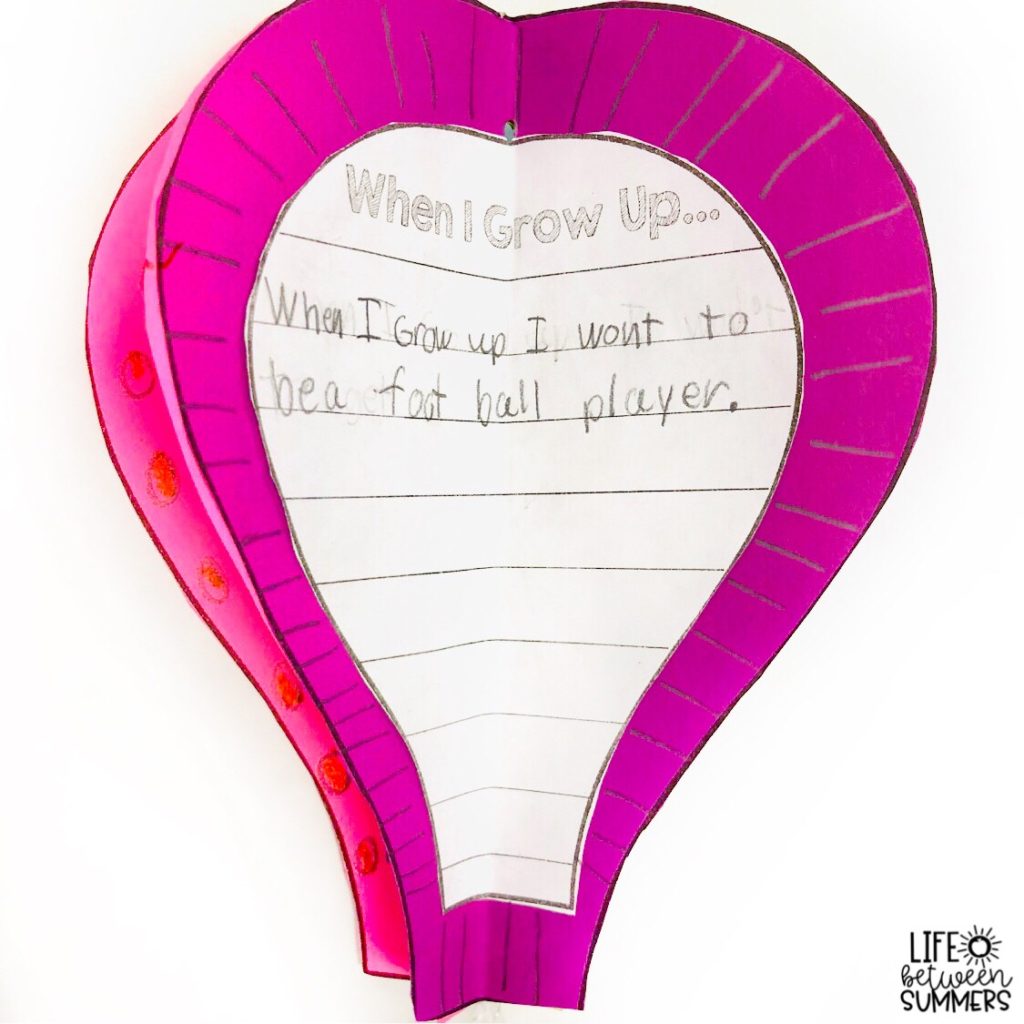 When I Grow Up...
When I Grow up I wont to
be a foot ball player.
LIFE
between
SUMMERS